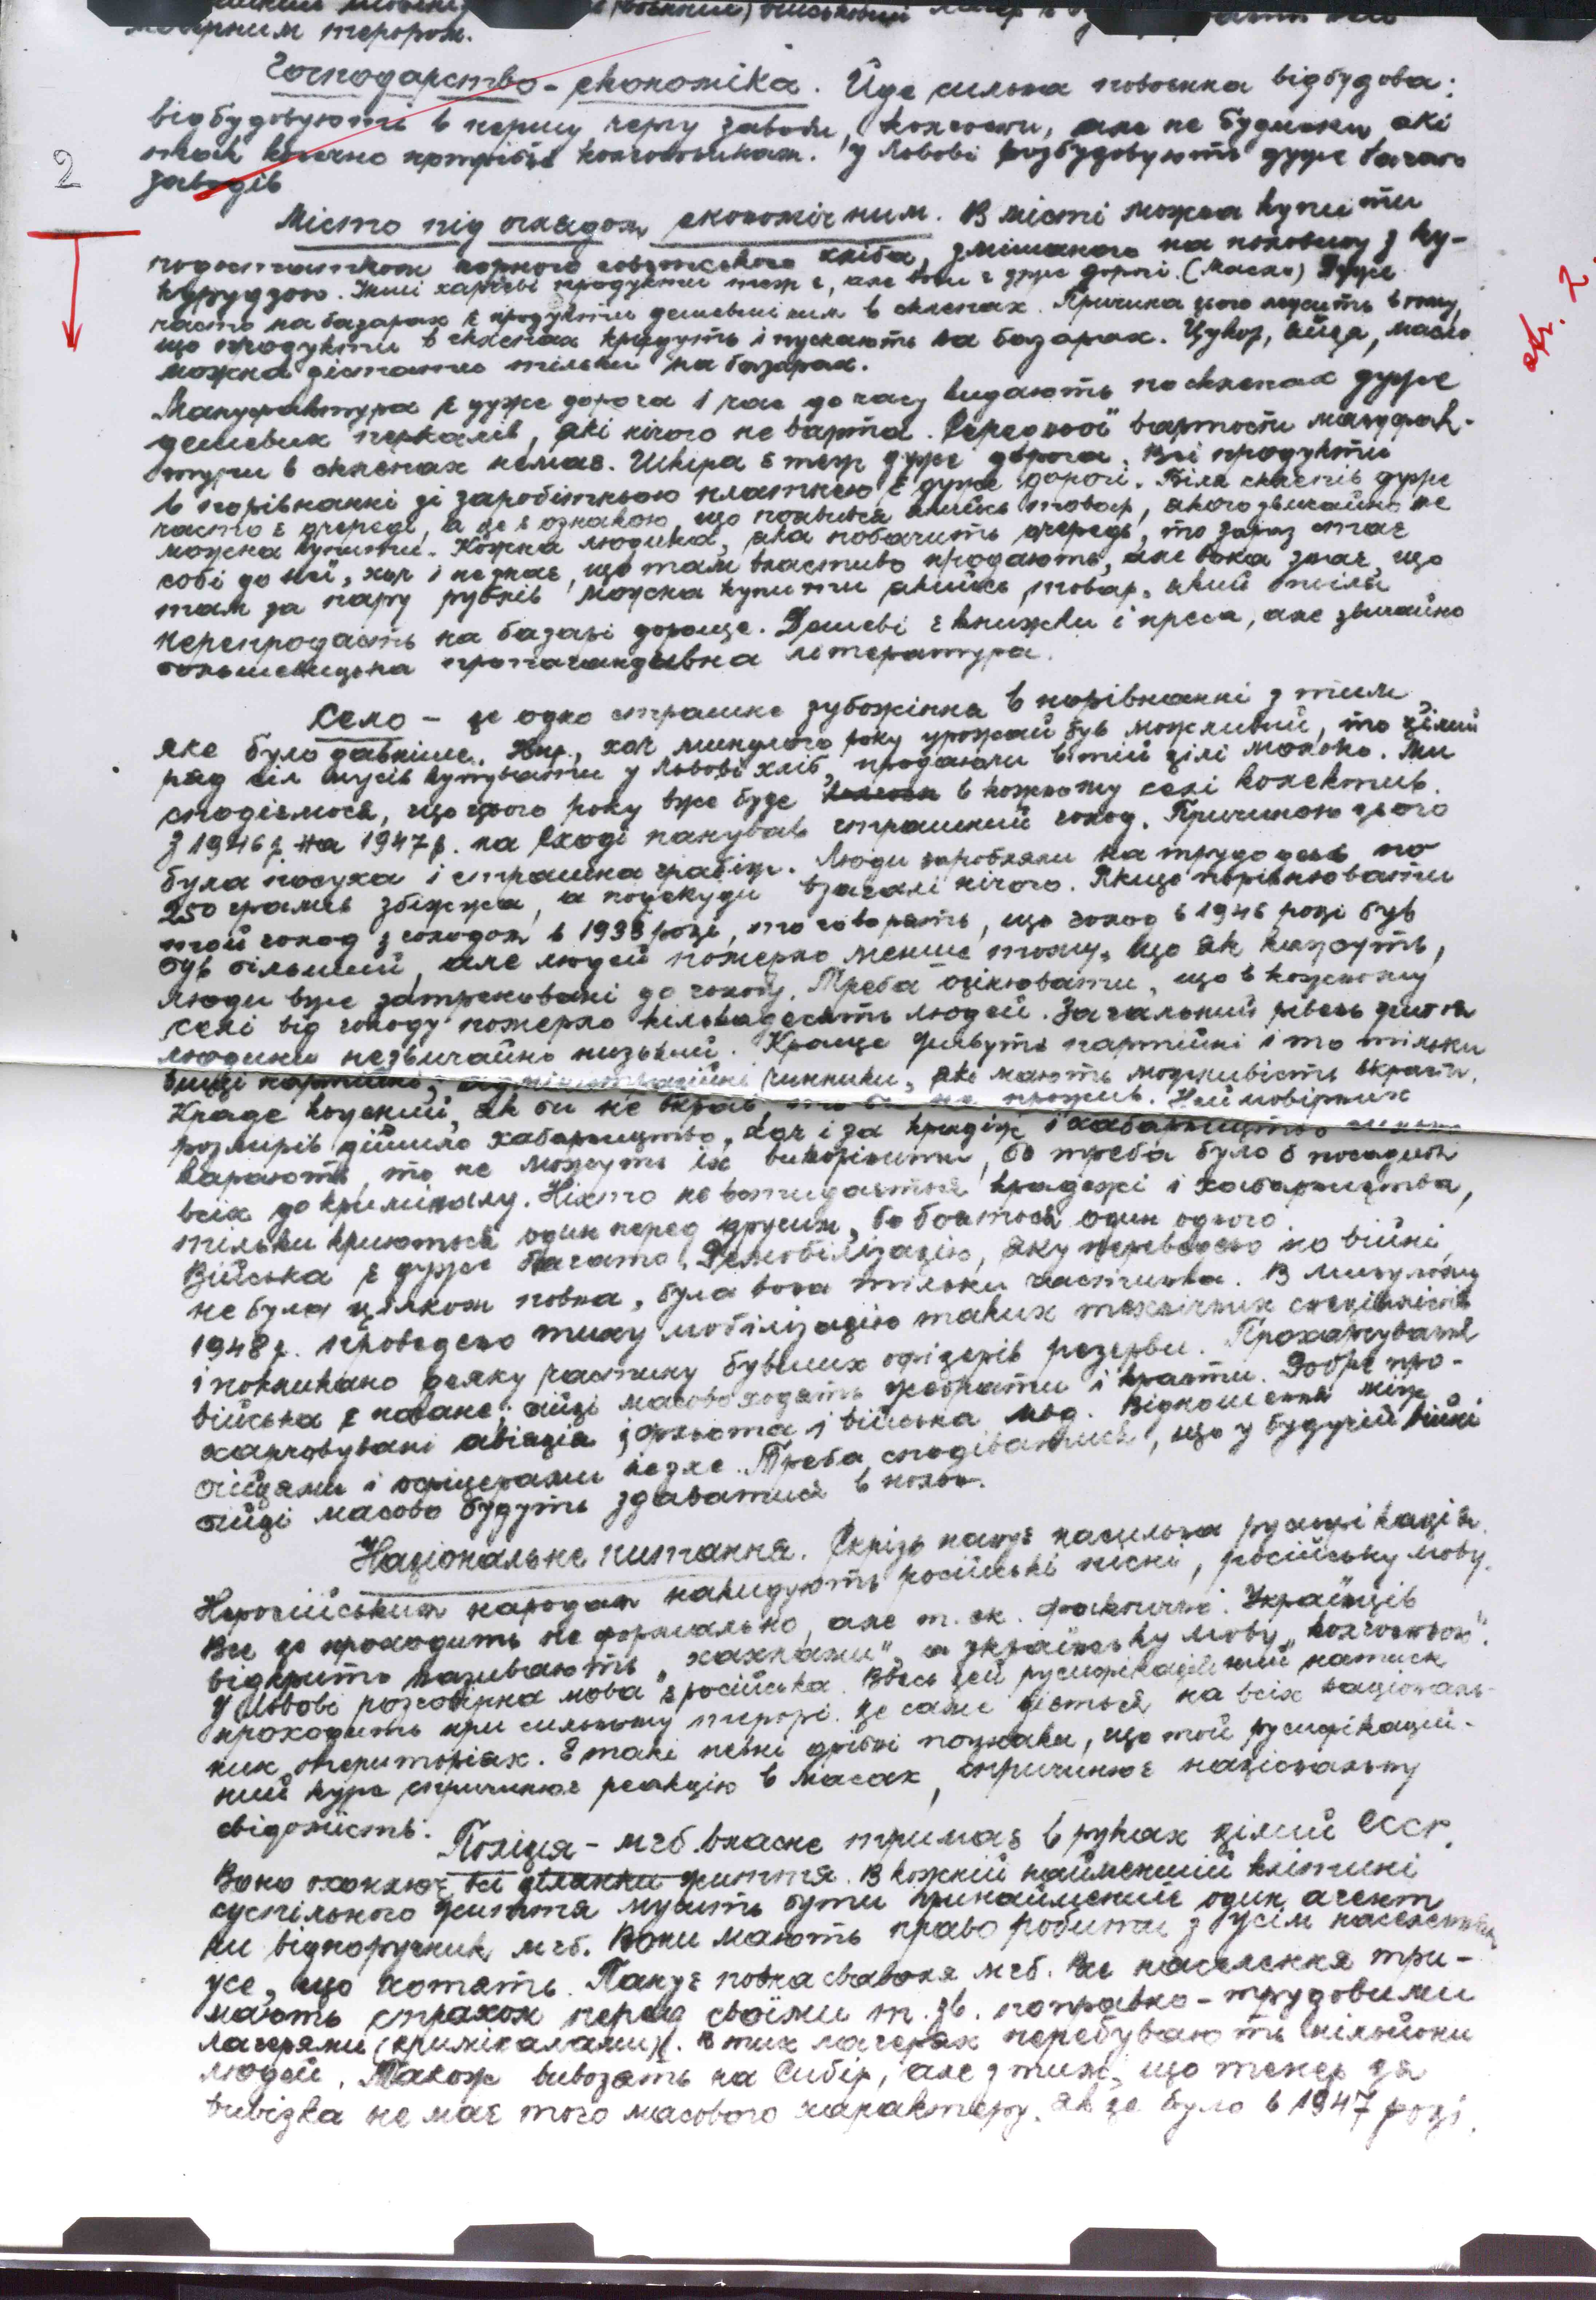 терором.
Господарство - економіка. Йде сильна повоєнна відбудова:
відбудовують в першу чергу заводи, колгоспи, але не будинки, які
так конечно потрібні колгоспникам. У Львові розбудовують дуже багато
заводів
2
Місто під оглядом економічним. В місті можна купити
подостатком чорного совєтського хліба, змішаного на половину з ку-
курудзою. Інші харчеві продукти теж є, але вони є дуже дорогі. (Масло) Дуже
часто на базарах є продукти дешевші ним в склепах. Причина цього лежить в тому,
що продукти в склепах крадуть і пускають на базарах. Цукор, яйця, масло
можна дістати тільки на базарах.
стр. 2.
Мануфактура є дуже дорога і час до часу видають по склепах дуже
дешевих перкалів, які нічого не варта. Середньої вартости мануфак-
тури в склепах немає. Шкіра є теж дуже дорога. Всі продукти
в порівнанні зі заробітньою платнею є дуже дорогі. Біля склепів дуже
часто є очереді, а це є ознакою, що появився якийсь товар, якого звичайно не
можна купити. Кожна людина, яка побачить очередь, то зараз стає
собі до неї, хоч і не знає, що там властиво продають, але вона знає, що
там за пару рублів можна купити якийсь товар, який опісля
перепродасть на базарі дорожче. Дешеві є книжки і преса, але звичайно
большевицька пропагандивна література.
Село - це одно страшне зубожіння в порівнанні з тим
яке було давніше. Нпр., хоч минулого року урожай був можливий, то цілий
ряд сіл мусів купувати у Львові хліб, продаючи в тій цілі молоко. Ми
сподіємося, що цього року вже буде в кожному селі колектив.
З 1946 р. на 1947 р. на Сході панував страшний голод. Причиною цього
була посуха і страшна грабіж. Люди заробляли на трудодень по
250 грамів збіжжа, а подекуди взагалі нічого. Якщо порівнювати
той голод з голодом в 1933 році, то говорять, що голод в 1946 році був
був більший, але людей померло менше тому, що як кажуть,
люди вже затреновані до голоду. Треба оцінювати, що в кожному
селі від голоду померло кільканадесять людей. Загальний рівень життя
людини незвичайно низький. Краще живуть партійні і то тільки
вищі партійні, адміністраційні чинники, які мають можливість вкрасти.
Краде кожний, як би не вкрав, то би не прожив. Неймовірних
розмірів дійшло хабарництво, хоч і за крадіж і хабарництво
карають, то не можуть їх викорінити, бо треба було б посадити
всіх до криміналу. Ніхто не встидається крадежі і хабарництва,
тільки криються один перед другим, бо бояться один одного.
Війська є дуже багато. Демобілізацію, яку переведено по війні,
не була цілком повна, була вона тільки частинна. В минулому
1948 р. проведено тиху мобілізацію таких технічних спеціялістів
і покликано деяку частину бувших офіцерів резерви. Прохарчування
війська є погане; бійці масово ходять жебрати і красти. Добре про-
харчовувані авіяція, фльота і війська мвд. Відношення між
бійцями і офіцерами незле. Треба сподіватися, що у будучій війні
бійці масово будуть здаватися в полон.
Національне питання. Скрізь панує насильна русифікація.
Неросійським народам накидують російські пісні, російську мову.
Все це проходить не формально, але т. ск. фактично. Українців
відкрито називають „хахлами", а українську мову „колгоспною".
У Львові розговірна мова є російська. Ввесь цей русифікаційний натиск
проходить при сильному терорі. Це саме діється на всіх національ-
них територіях. Є такі певні дрібні познаки, що той русифікацій-
ний курс спричинює реакцію в масах, спричинює національну
свідомість.
Поліція - мгб. власне тримає в руках цілий СССР.
Воно охоплює всі ділянки життя. В кожній найменшій клітині
суспільного життя мусить бути принайменше один агент
чи відпоручник мгб. Вони мають право робити з усім населенням
усе, що хотять. Панує повна сваволя мгб. Все населення три-
мають страхом перед своїми т. зв. поправно-трудовими
лагерями (криміналами). В тих лагерях перебувають мільйони
людей. Також вивозять на Сибір, але з тим, що тепер ця
вивізка не має того масового характеру, як це було в 1947 році.